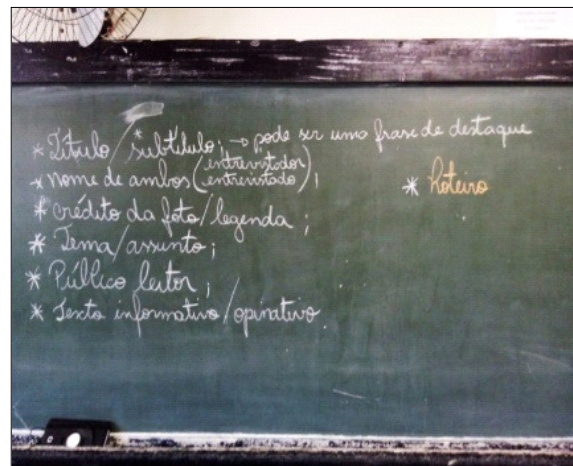 * Título/*subtítulo; → pode ser uma frase de destaque
* nome de ambos (entrevistador/entrevistado);
* crédito da foto/legenda;
* Tema/assunto;
* Público leitor;
* Texto informativo/opinativo.
* Roteiro